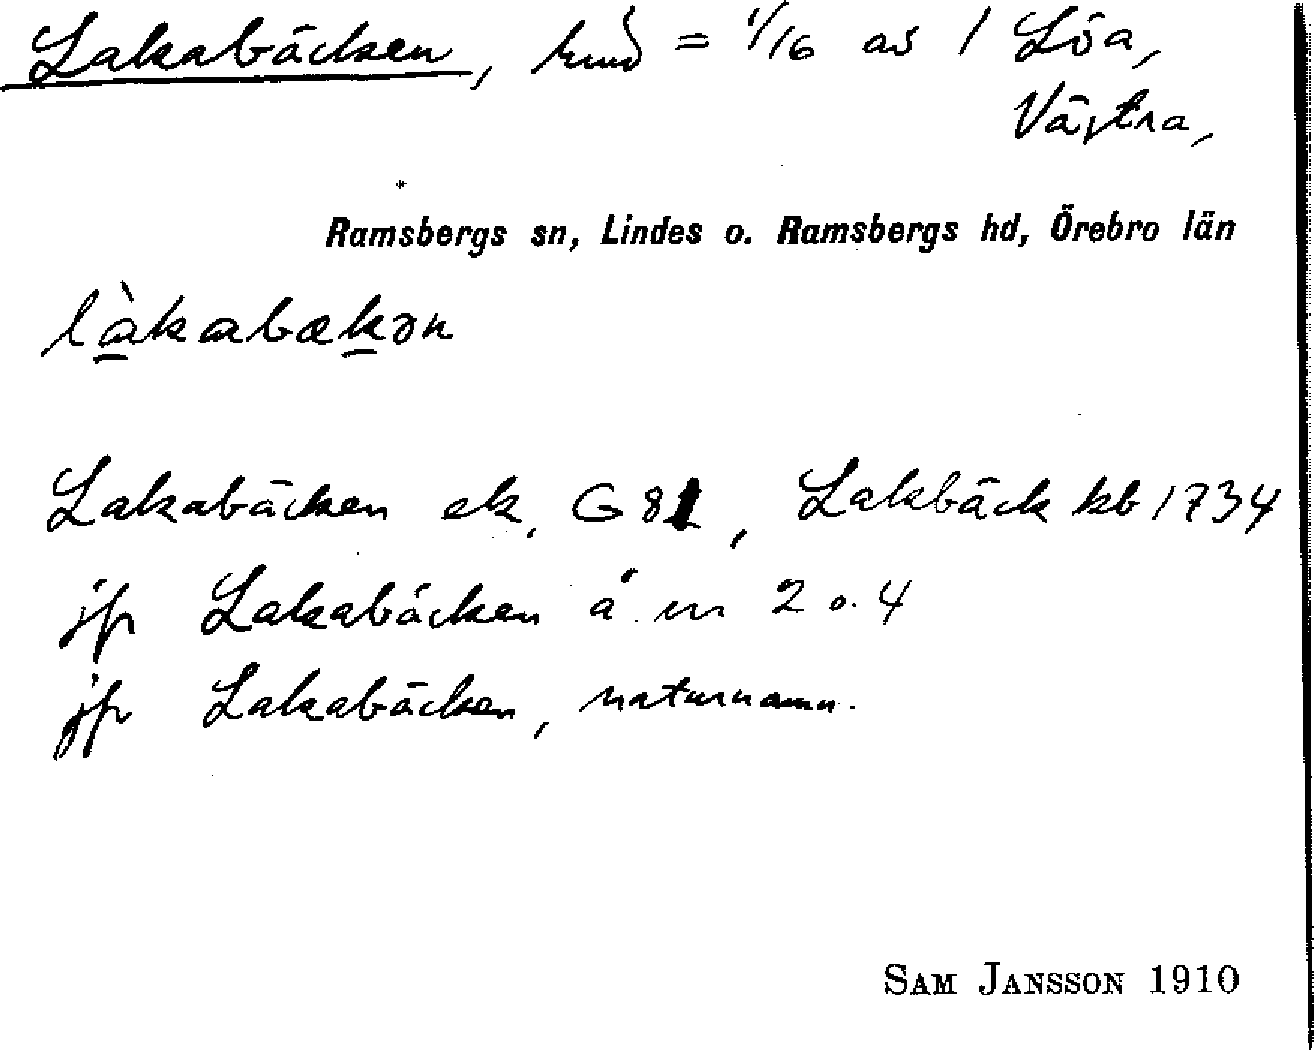 Lakabäcken, hmd = 1/16 av 1 Löa,
Västra,
Ramsbergs sn, Lindes o. Ramsbergs hd, Örebro län
làkabækən
Lakabäcken ek. G 81, Lakbäck kb 1734
jfr Lakabäcken å nr 2 o. 4
jfr Lakabäcken, naturnamn.
SAM JANSSON 1910